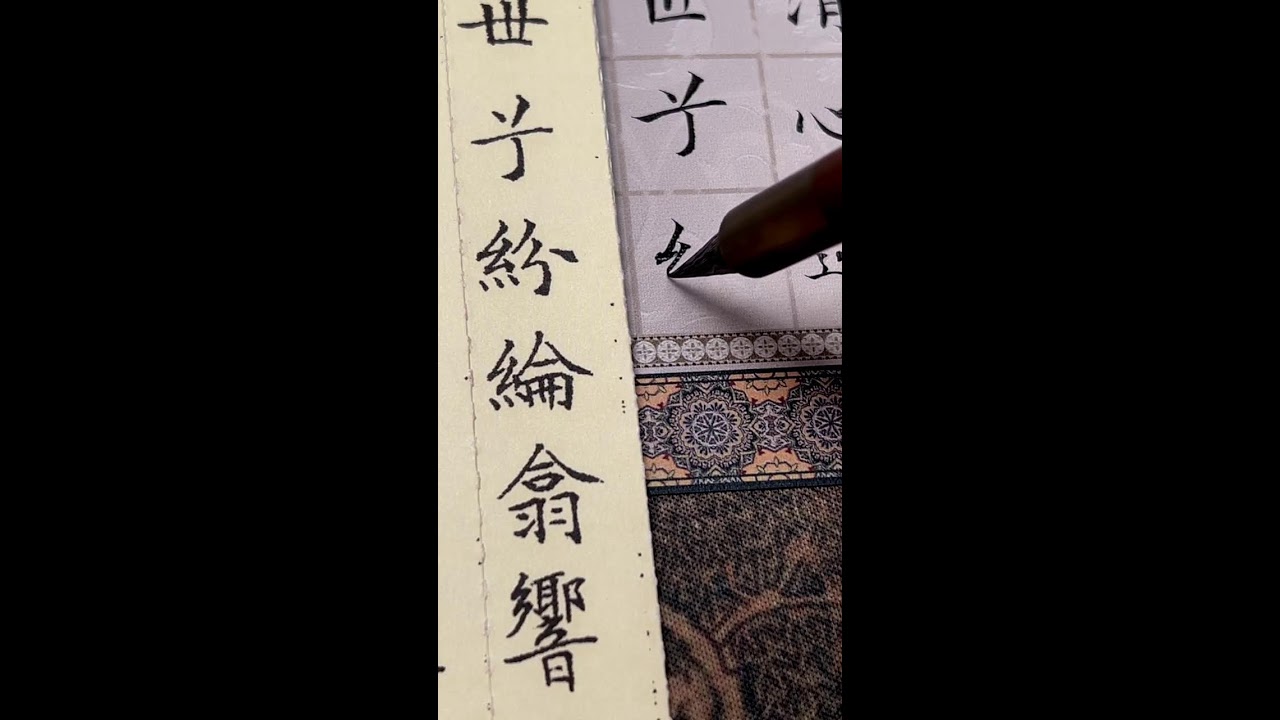 清心
世兮
世兮紛綸翕響